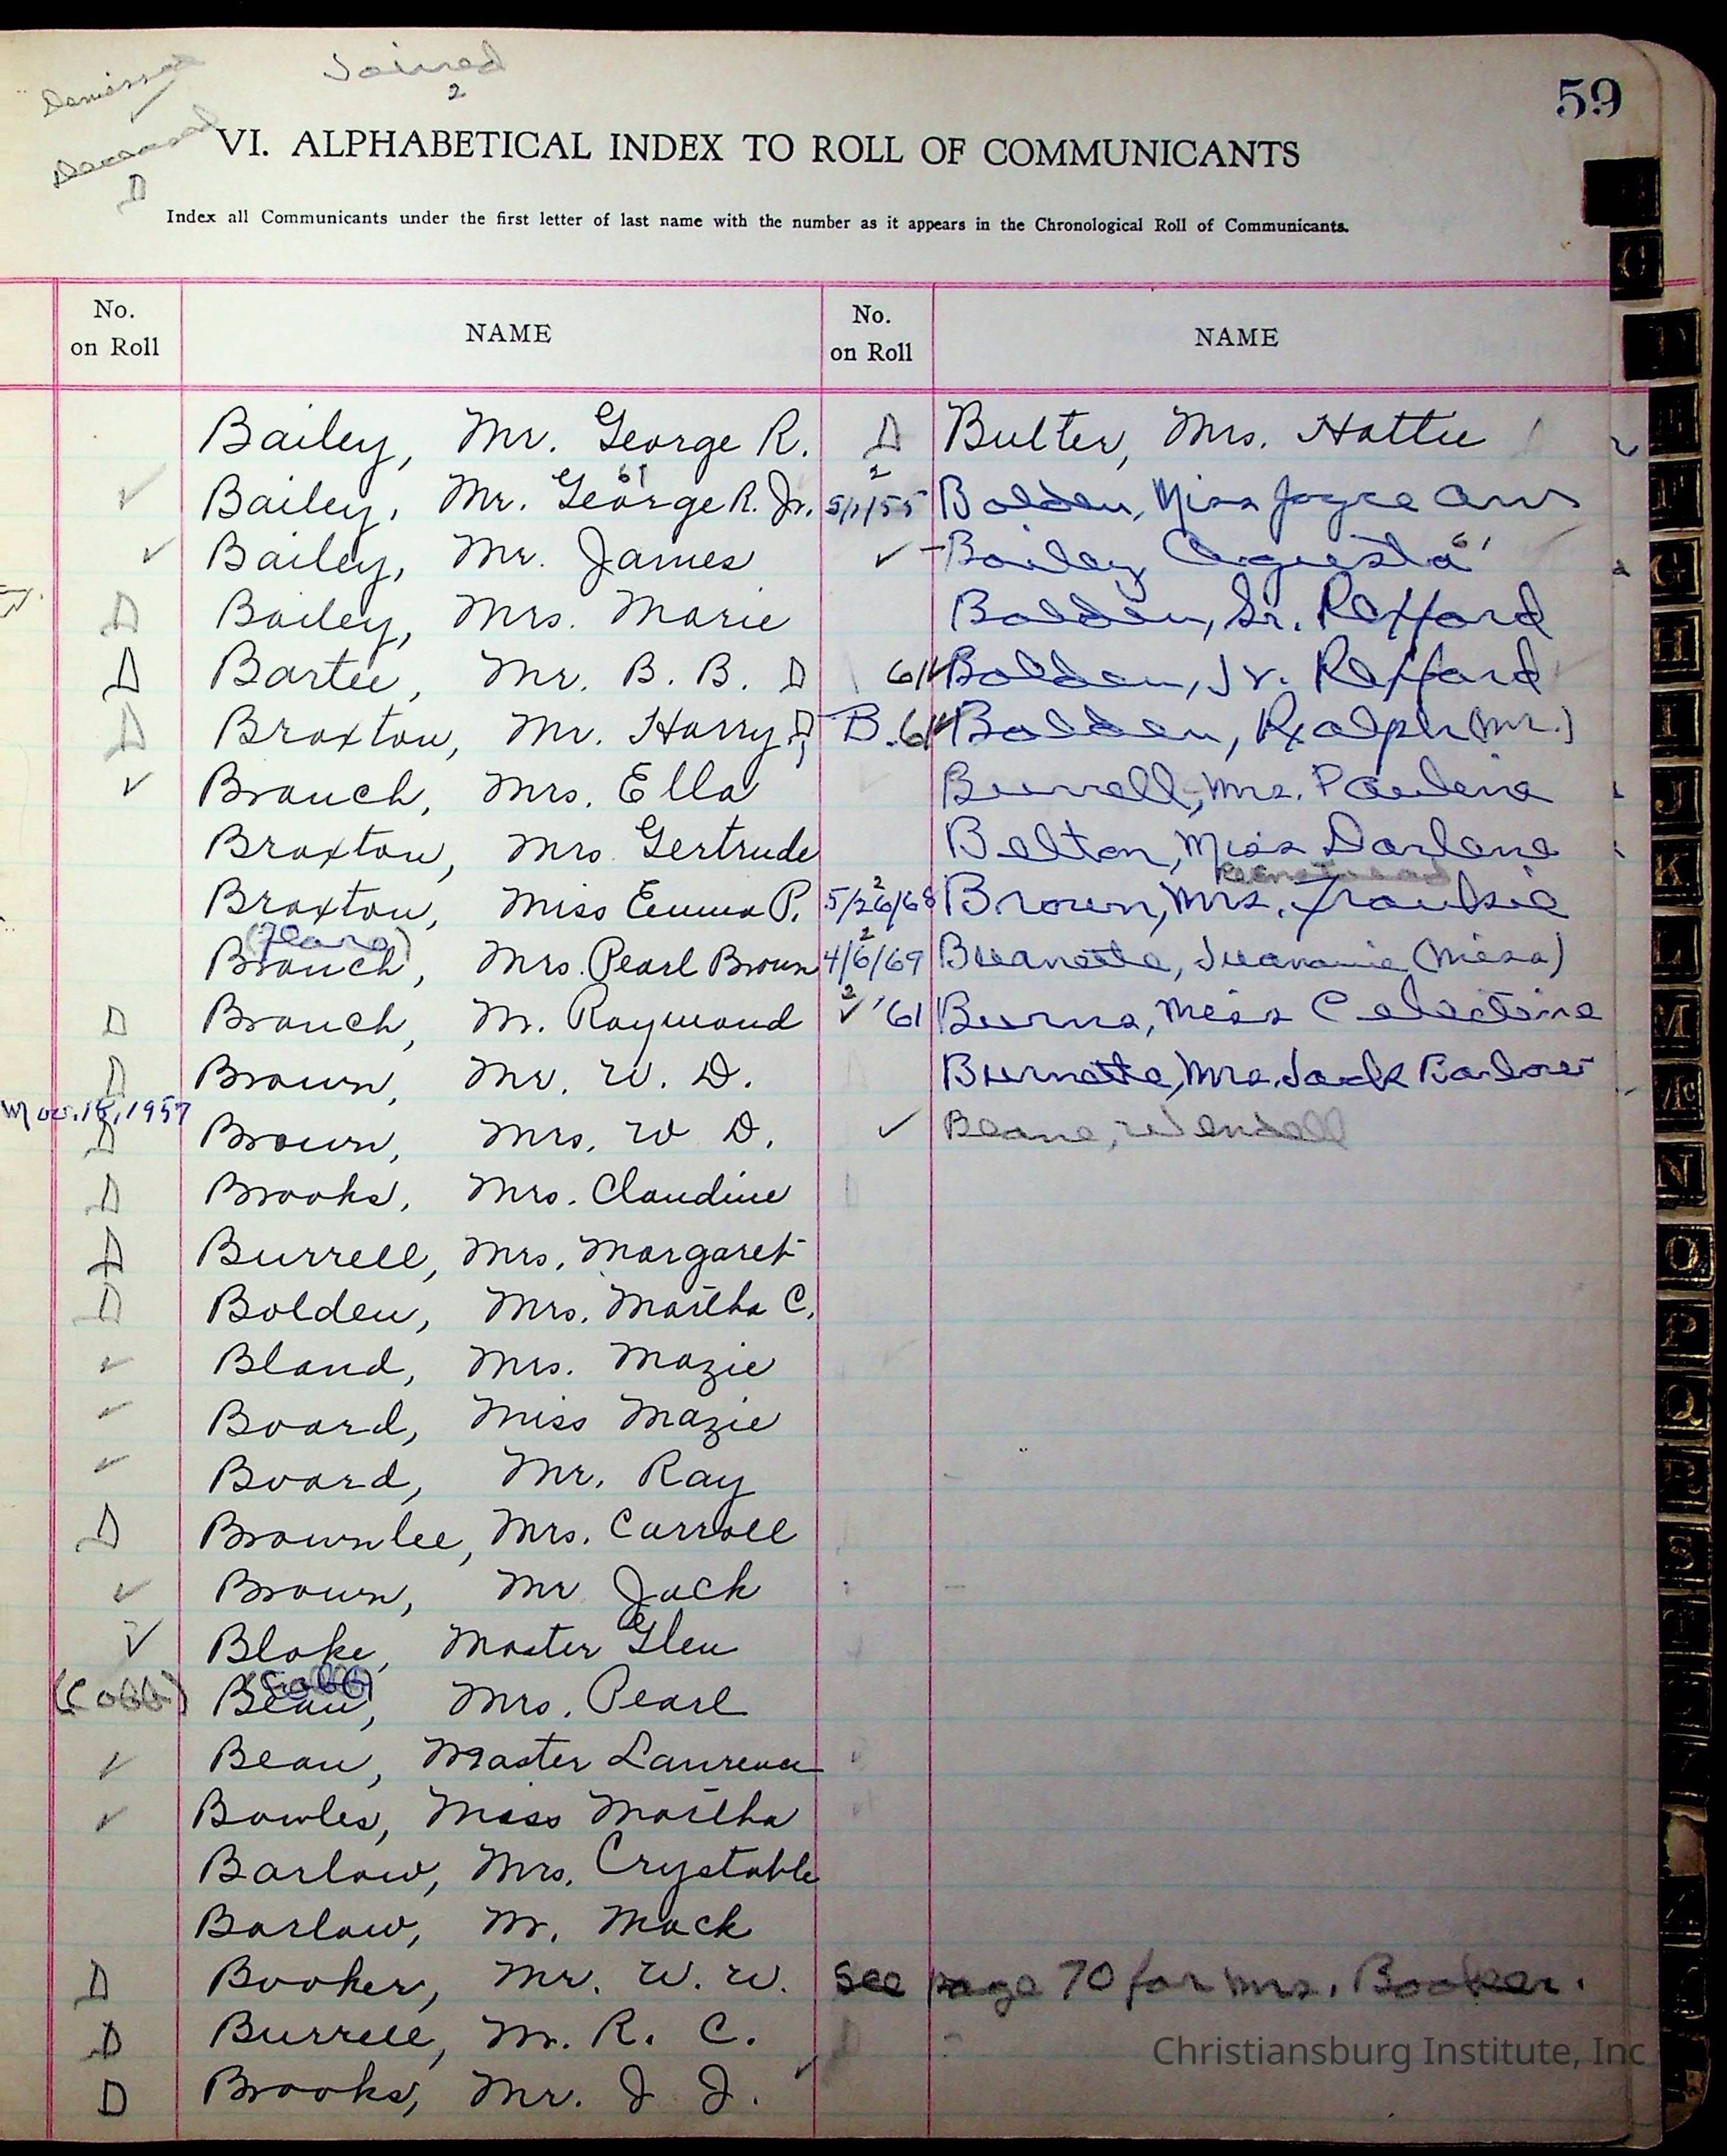 Joined
2
59
Deceased
D
VI. ALPHABETICAL INDEX TO ROLL OF COMMUNICANTS
Index all Communicants under the first letter of last name with the number as it appears in the Chronological Roll of Communicants.
No. on Roll
NAME
No. on Roll
NAME
Bailey, Mr. George R.
✓ Bailey, Mr. George R. Jr. 61
✓ Bailey, Mr. James
D Bailey, Mrs. Marie
D Bartee, Mr. B. B. D
D Braxton, Mr. Harry B.
✓ Branch, Mrs. Ella
Braxton, Mrs Gertrude
Braxton, Miss Emma P.
Branch, Mrs. Pearl Brown
D Branch, Mr. Raymond
D Brown, Mr. W. D.
Mar. 18, 1957
D Brown, Mrs. W D.
D Brooks, Mrs. Claudine
D Burrell, Mrs. Margaret
D Bolden, Mrs. Martha C.
✓ Bland, Mrs. Mazie
✓ Board, Miss Mazie
✓ Board, Mr. Ray
D Brownlee, Mrs. Carroll
✓ Brown, Mr Jack
✓ Blake, Master Glen
(Cobb) Bean, Mrs. Pearl
✓ Bean, Master Laurence
✓ Bowles, Miss Martha
Barlow, Mrs. Crystable
Barlow, Mr. Mack
D Booker, Mr. W. W.
D Burrell, Mr. R. C.
D Brooks, Mr. J J.
D Bulter, Mrs. Hattie
2
5/1/55 Bolden, Miss Joyce Ann
✓ Bailey Agusta 61
Bolden, Sr. Rexford
61 ✓ Bolden, Jr. Rexford
61 ✓ Bolden, Ralph (Mr.)
Burrell, Mrs. Paulina
Belton, Miss Darlene
2
5/26/68 Brown, Mrs. Franksie
2
4/6/69 Burnette, Juanania (Miss)
2
✓ '61 Burns, Miss Celestine
Burnette, Mrs. Jack Barlow
✓ Beane, Wendell
See page 70 for Mrs. Booker.
Christiansburg Institute, Inc